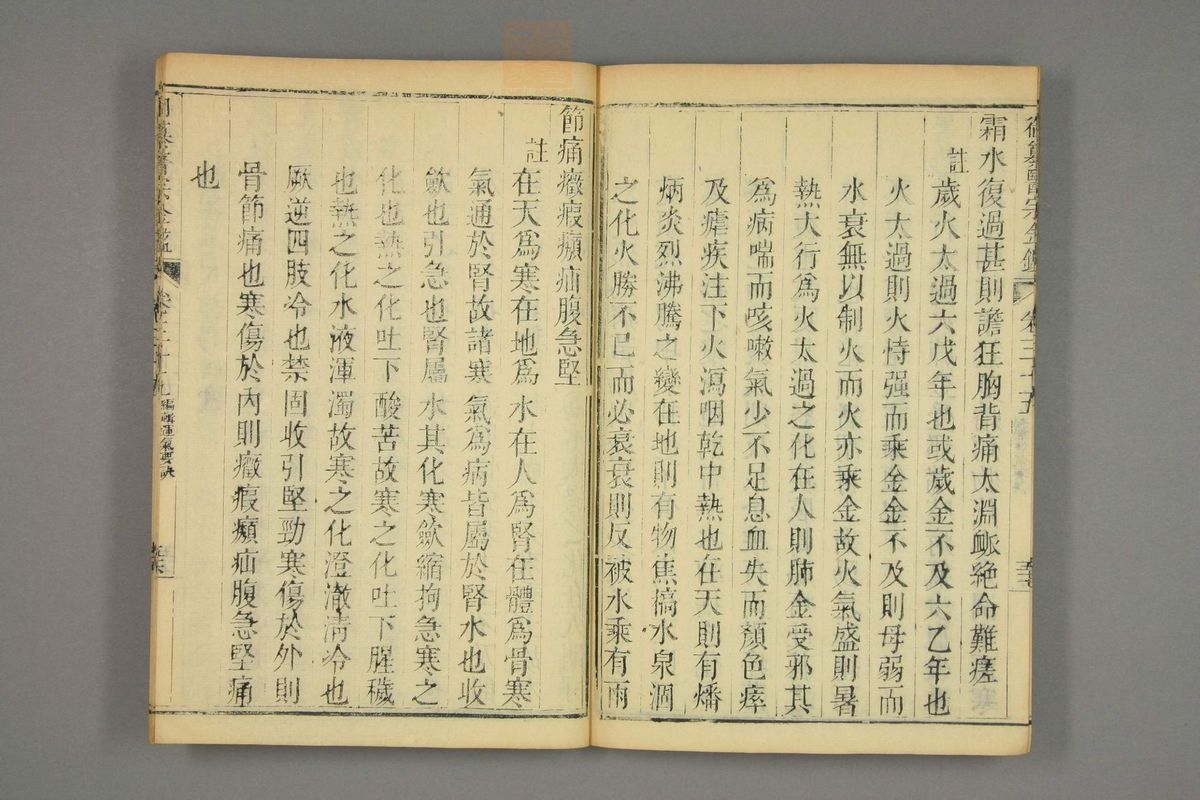 御纂醫宗金鑑 卷三十五
霜水復過甚則譫狂胸背痛太淵衇絕命難瘥
註
歲火太過六戊年也或歲金不及六乙年也
火太過則火恃强而乘金金不及則母弱而
水衰無以制火而火亦乘金故火氣盛則暑
熱大行爲火太過之化在人則肺金受邪其
爲病喘而咳嗽氣少不足息血失而顏色瘁
及瘧疾注下火瀉咽乾中熱也在天則有燔
炳炎烈沸騰之變在地則有物焦槁水泉涸
之化火勝不已而必衰衰則反被水乘有雨
節痛癥瘕㿗疝腹急堅
註
在天爲寒在地爲水在人爲腎在體爲骨寒
氣通於腎故諸寒氣爲病皆屬於腎水也收
歛也引急也腎屬水其化寒歛縮拘急寒之
化也熱之化吐下酸苦故寒之化吐下腥穢
也熱之化水液渾濁故寒之化澄澈清冷也
厥逆四肢冷也禁固收引堅勁寒傷於外則
骨節痛也寒傷於內則癥瘕㿗疝腹急堅痛
也
編輯運氣要訣